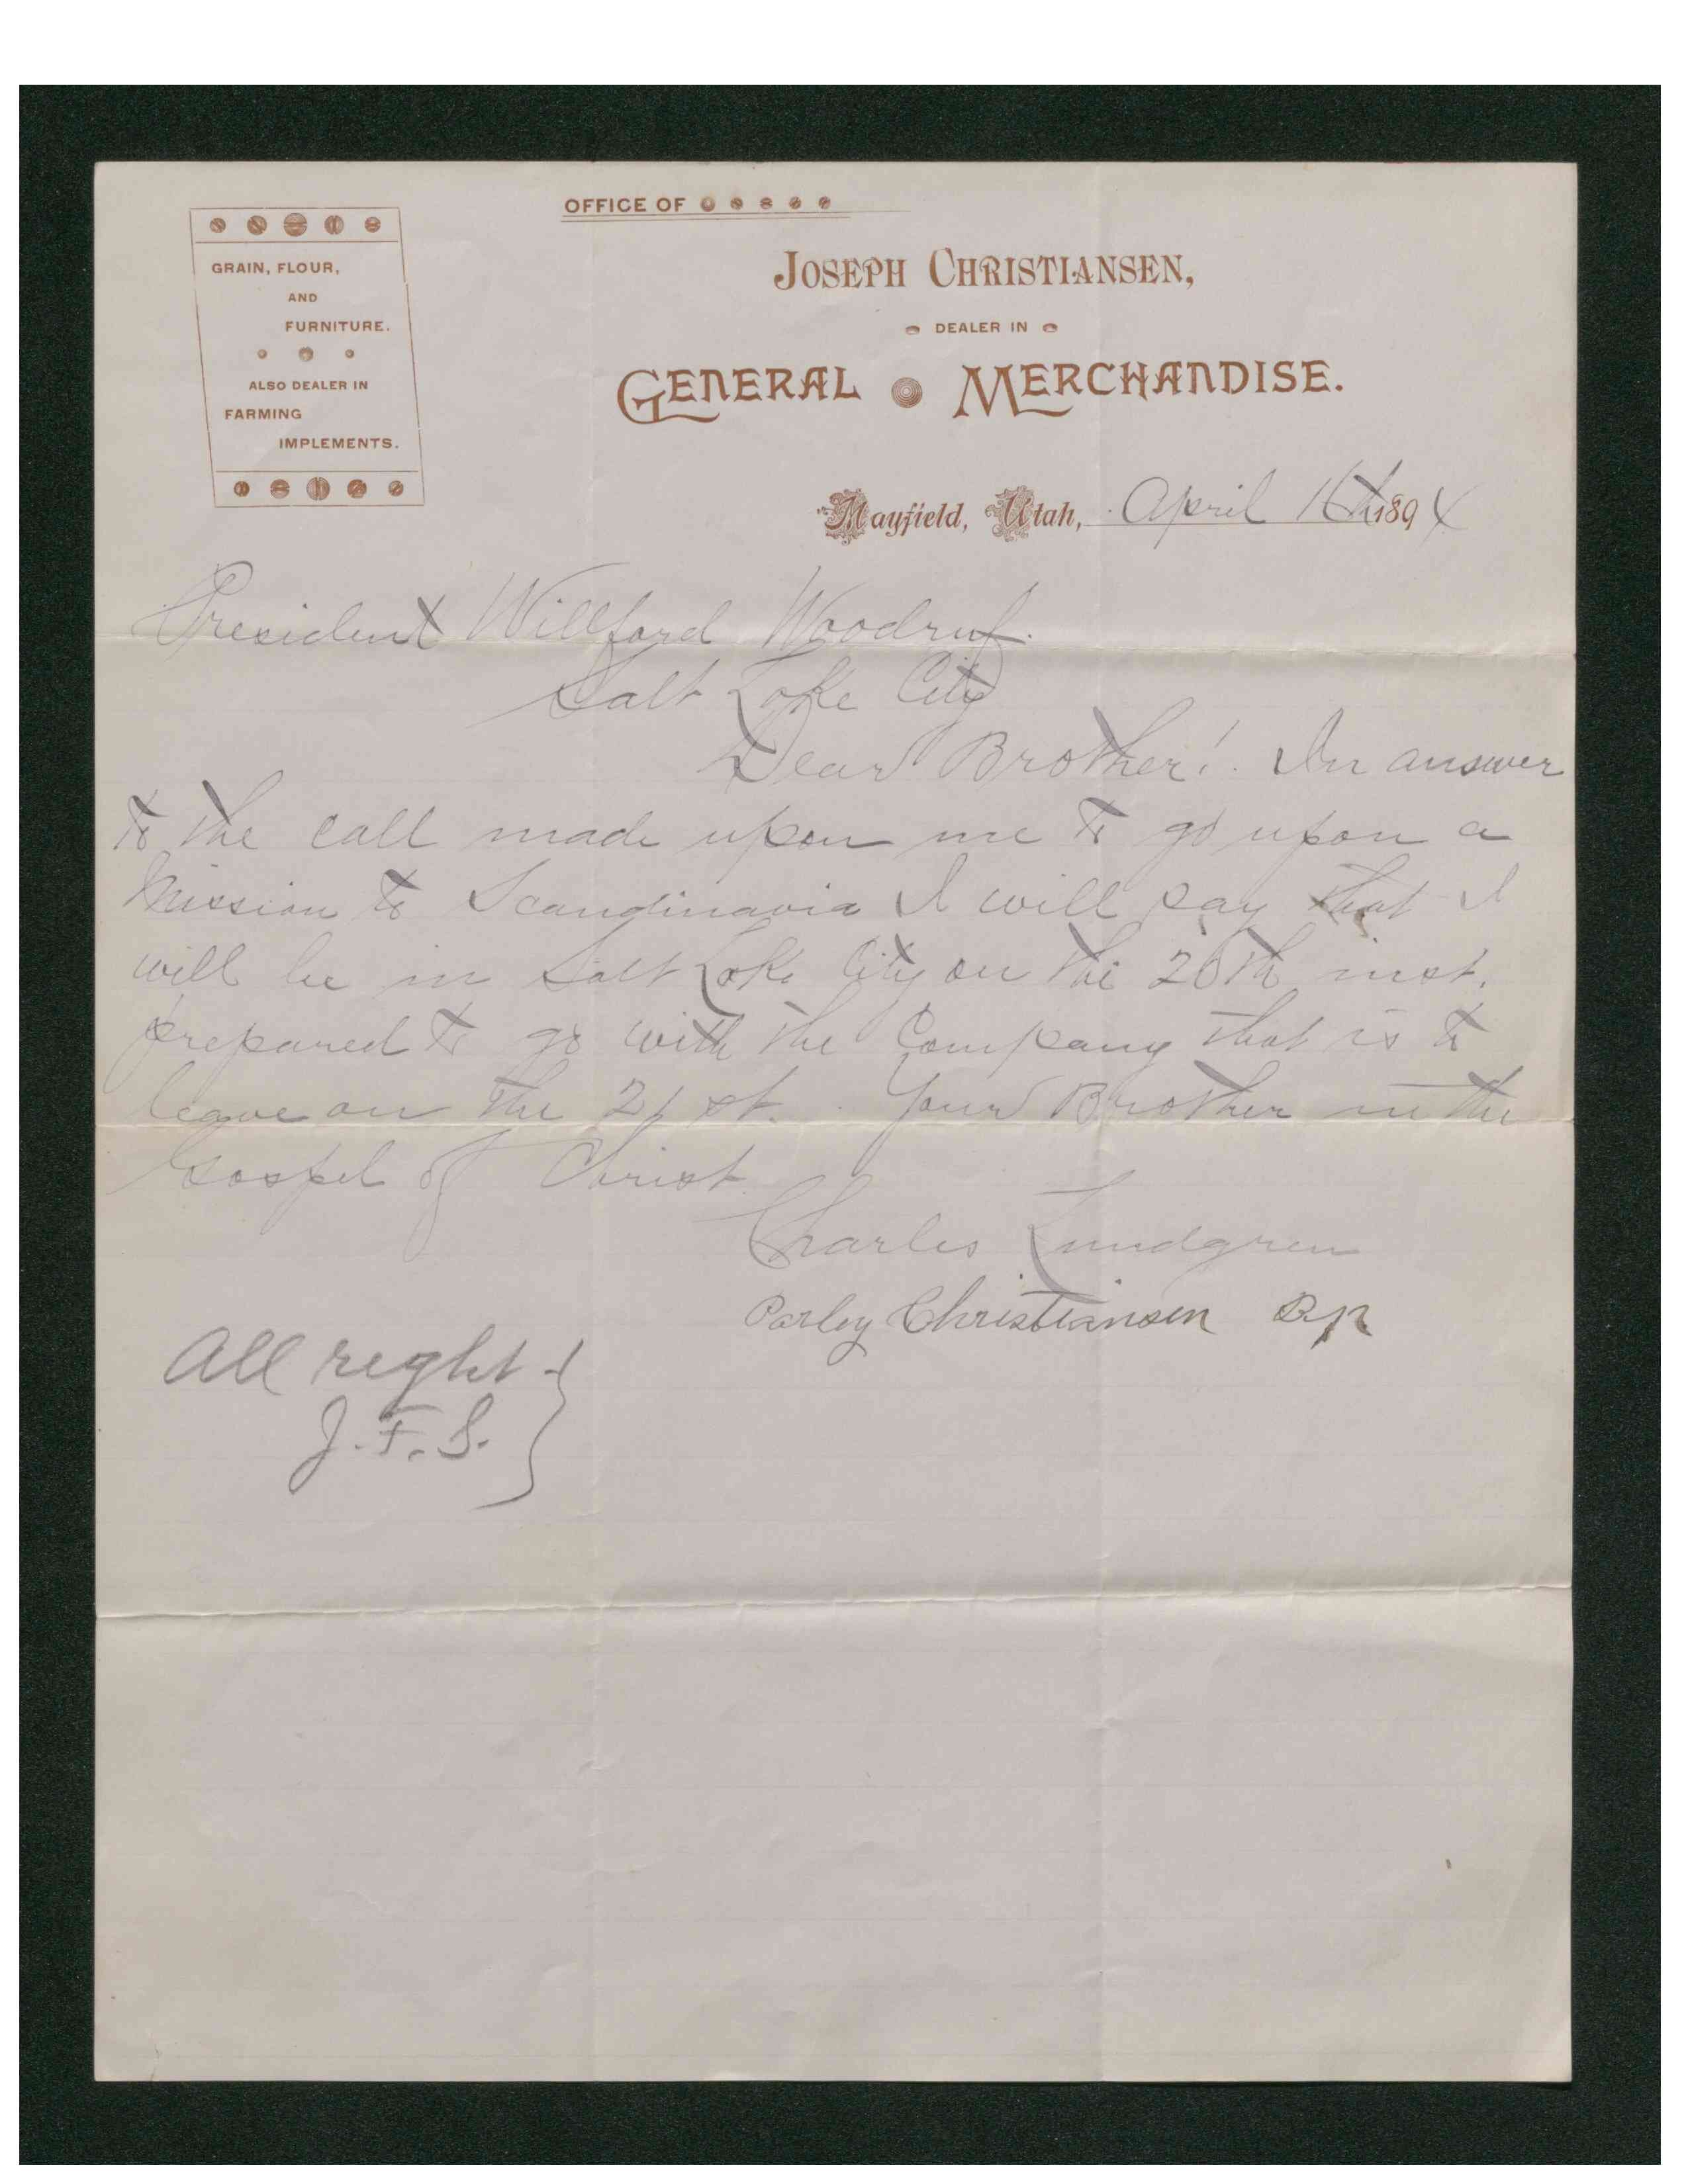 OFFICE OF
JOSEPH CHRISTIANSEN,
DEALER IN
GENERAL MERCHANDISE.
GRAIN, FLOUR,
AND
FURNITURE.
ALSO DEALER IN
FARMING
IMPLEMENTS.
Mayfield, Utah, April 16th 1894
President Willford Woodruf.
Salt Lake City
Dear Brother! In answer
to the call made upon me to go upon a
Mission to Scandinavia I will say that I
will be in Salt Lake City on the 20th inst.
prepared to go with the Company that is to
leave on the 21st. Your Brother in the
Gospel of Christ
Charles Lundgren
Parley Christiansen Bp
All right
J. F. S.